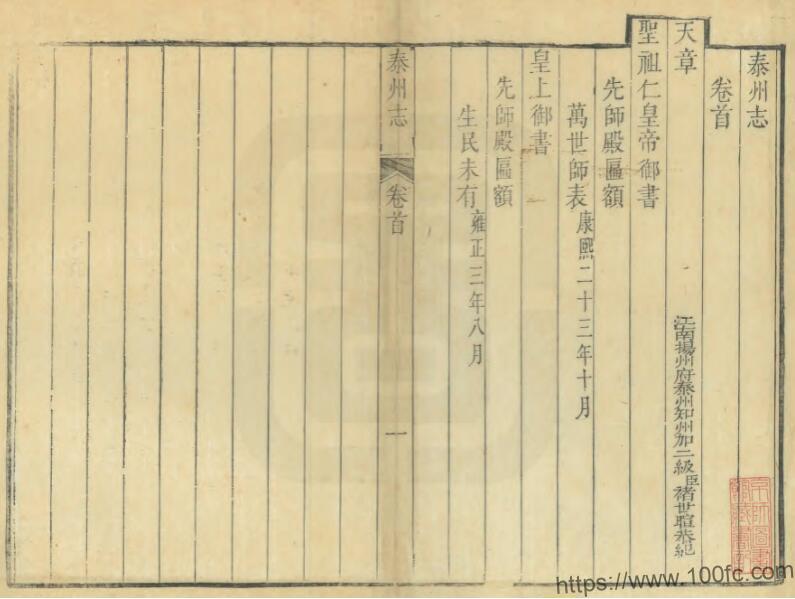 泰州志
卷首
天章
江南揚州府泰州知州加二級臣褚世暄恭紀
聖祖仁皇帝御書
先師殿匾額
萬世師表康熙二十三年十月
皇上御書
先師殿匾額
生民未有雍正三年八月
泰州志
卷首
一
京師圖書館藏書記
https://www.100fc.com